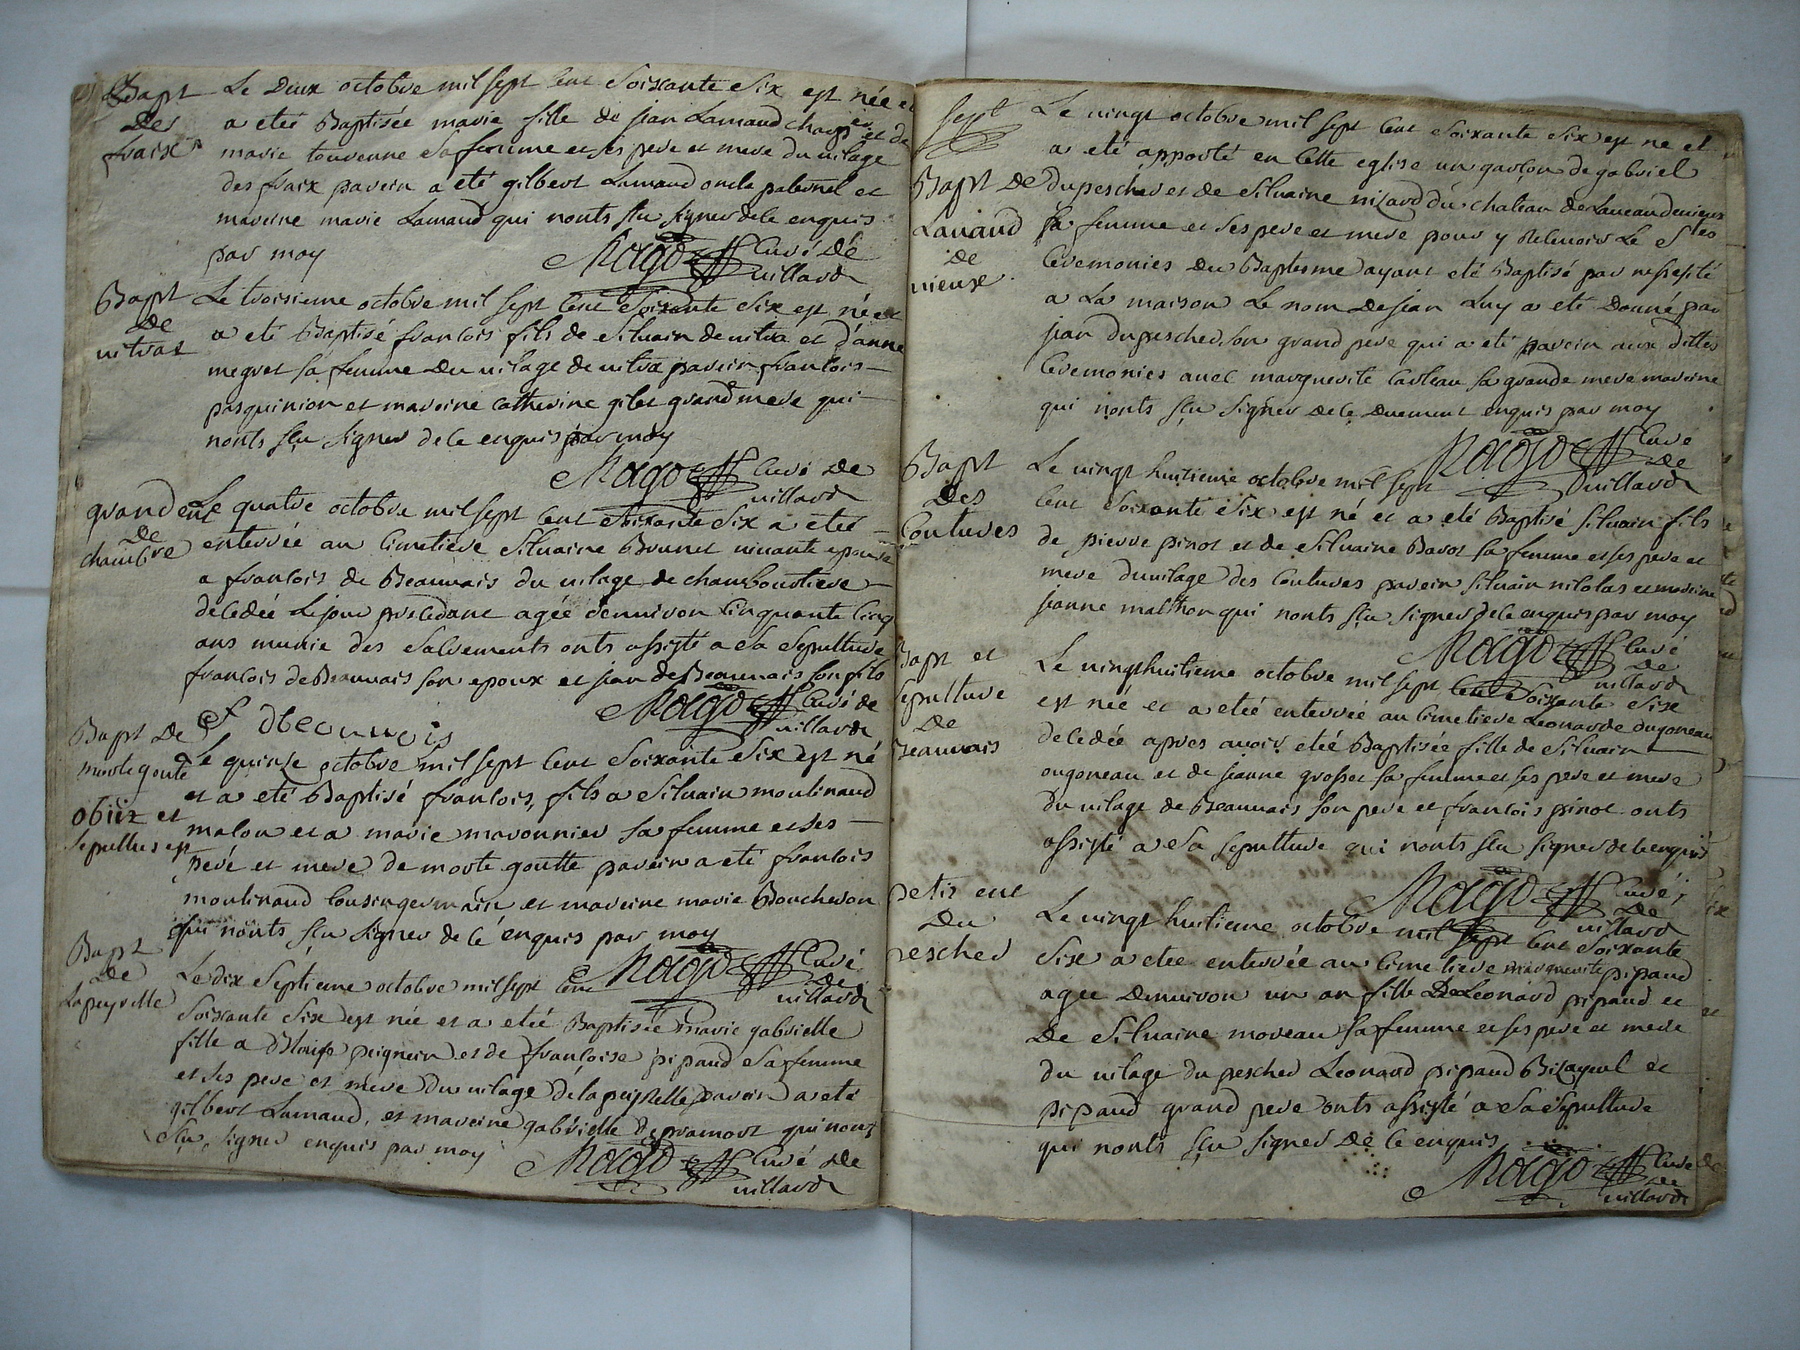 Bapt
Des
fraix
Le Deux octobre mil sept Cent Soixante Six est née et
a eteé Baptisée marie fille de jean Lamaud charp.er et de
marie touvenne Sa femme et ses pere et mere du vilage
des fraix parein a eté gilbert Lamaud oncle paternel et
mareine marie Lamaud qui nonts sçu signer de ce enquis
par moy
Nogo Curé de
villard
Bapt
De
vitrat
Le troisieme octobre mil sept Cent Soixante Six est né et
a eté Baptisé francois fils de Silvain de vitra et d'anne
megret sa femme Du vilage de vitra parein francois
pasquinion et mareine catherine gilet grand mere qui
nonts sçu signer de ce enquis par moy
Nogo Curé De
villard
grand ent
De
chambre
Le quatre octobre mil sept Cent Soixante Six a eteé
enterrée au Cimetiere Silvaine Brunet vivante epouse
a francois de Beauvais du vilage de chamboutiere
decedée Le jour precedant agée d'environ Cinquante Cinq
ans munie des Sacrements onts assisté a Sa Sepulture
francois de Beauvais son epoux et jean de Beauvais son fils
f dbeauvais
Nogo Curé de
villard
Bapt De
morte goute
obiit et
sepultus est
Le quinse octobre mil sept Cent Soixante Six est né
et a eté Baptisé francois, fils a Silvain moulinaud
malou et a marie maronnier sa femme et ses
peré et mere de morte goutte parein a eté francois
moulinaud Cousin germain et mareine marie Boucheron
qui nonts sçu signer de cé enquis par moy
Nogo Curé
De
villard
Bapt
De
Lapeyrelle
Le dix Septieme octobre mil sept Cent
Soixante Six est née et a eteé Baptisée marie gabrielle
fille a Blaise peignein et de francoise pipaud Sa femme
et ses pere et mere Du vilage Dé la peyrelle parein a eté
gilbert Lamaud, et mareine gabrielle depramort qui nonts
sçu signer enquis par moy
Nogo Curé De
villard
sept
Bapt De
Lavaud
de
vieux
Le vingt octobre mil sept Cent Soixante Six est né et
a eté apporté en Cette eglise un garçon de gabriel
Dupescher et de Silvaine nicard du chateau de Lavaudevieux
sa femme et Ses pere et mere pour y Recevoir Le S.tes
Ceremonies Du Baptesme ayant eté Baptisé par nessesité
a La maison Le nom de jean Luy a eté Donné par
jean dupescher Son grand pere qui a eté parein aux dittes
Ceremonies avec marguerite Carteau sa grande mere mareine
qui nonts sçu Signer de ce Duement enquis par moy
Nogo Curé
De
villard
Bapt
Des
Coutures
Le vingt huitieme octobre mil sept
Cent Soixante Six est né et a eté Baptisé Silvain fils
de pierre pinot et de Silvaine Barot sa femme et ses pere et
mere du vilage des Coutures parein Silvain nicolas et mareine
jeanne malthon qui nonts sçu signer de ce enquis par moy
Nogo Curé
De
villard
Bapt et
sepulture
De
Beauvais
Le vingt huitieme octobre mil sept Cent Soixante Six
est née et a eteé enterrée au Cimetiere Leonarde dugoneau
decedée apres avoir eteé Baptisée fille de Silvain
ougoneau et de jeanne grosset sa femme et ses pere et mere
du vilage de Beauvais son pere et francois pinot onts
assisté a Sa sepulture qui nonts sçu signer de ce enquis
Nogo Curé
De
villard
petit ent
Du
pescher
Le vingt huitieme octobre mil sept Cent Soixante
Six a eteé enterrée au Cimetiere marguerite pipaud
agée Denviron un an fille De Leonard pipaud et
De Silvaine moreau sa femme et ses pere et mere
du vilage du pescher Leonard pipaud Bizayeul et
pipaud grand pere onts assisté a Sa Sepulture
qui nonts sçu signer De Ce enquis
Nogo Curé de
villard